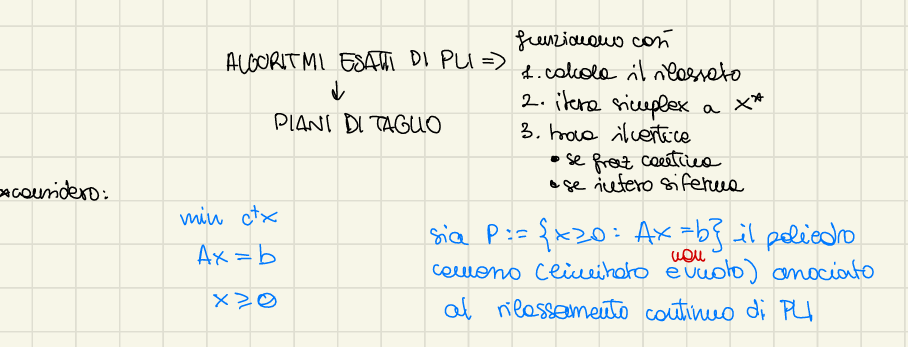 ALGORITMI ESATTI DI PLI =>
↓
PIANI DI TAGLIO
funzionano così
1. calcola il rilassato
2. itera simplex a x*
3. trova il vertice
• se fraz continua
• se intero si ferma
*considero:
min cᵗx
Ax = b
x ≥ 0
sia P := {x≥0 : Ax = b} il poliedro
non
convesso (limitato e vuoto) associato
al rilassamento continuo di PLI